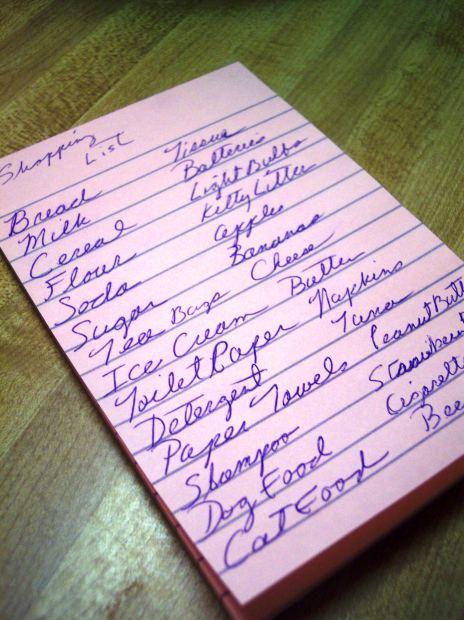 Shopping
List
Bread Tissue
Milk Batteries
Cereal Light Bulbs
Flour Kitty Litter
Soda apples
Sugar Bananas
Tea Bags Cheese
Ice Cream Butter
Toilet Paper Napkins
Detergent Tuna
Paper Towels Peanut Butt
Shampoo
Dog Food
Cat Food Bee